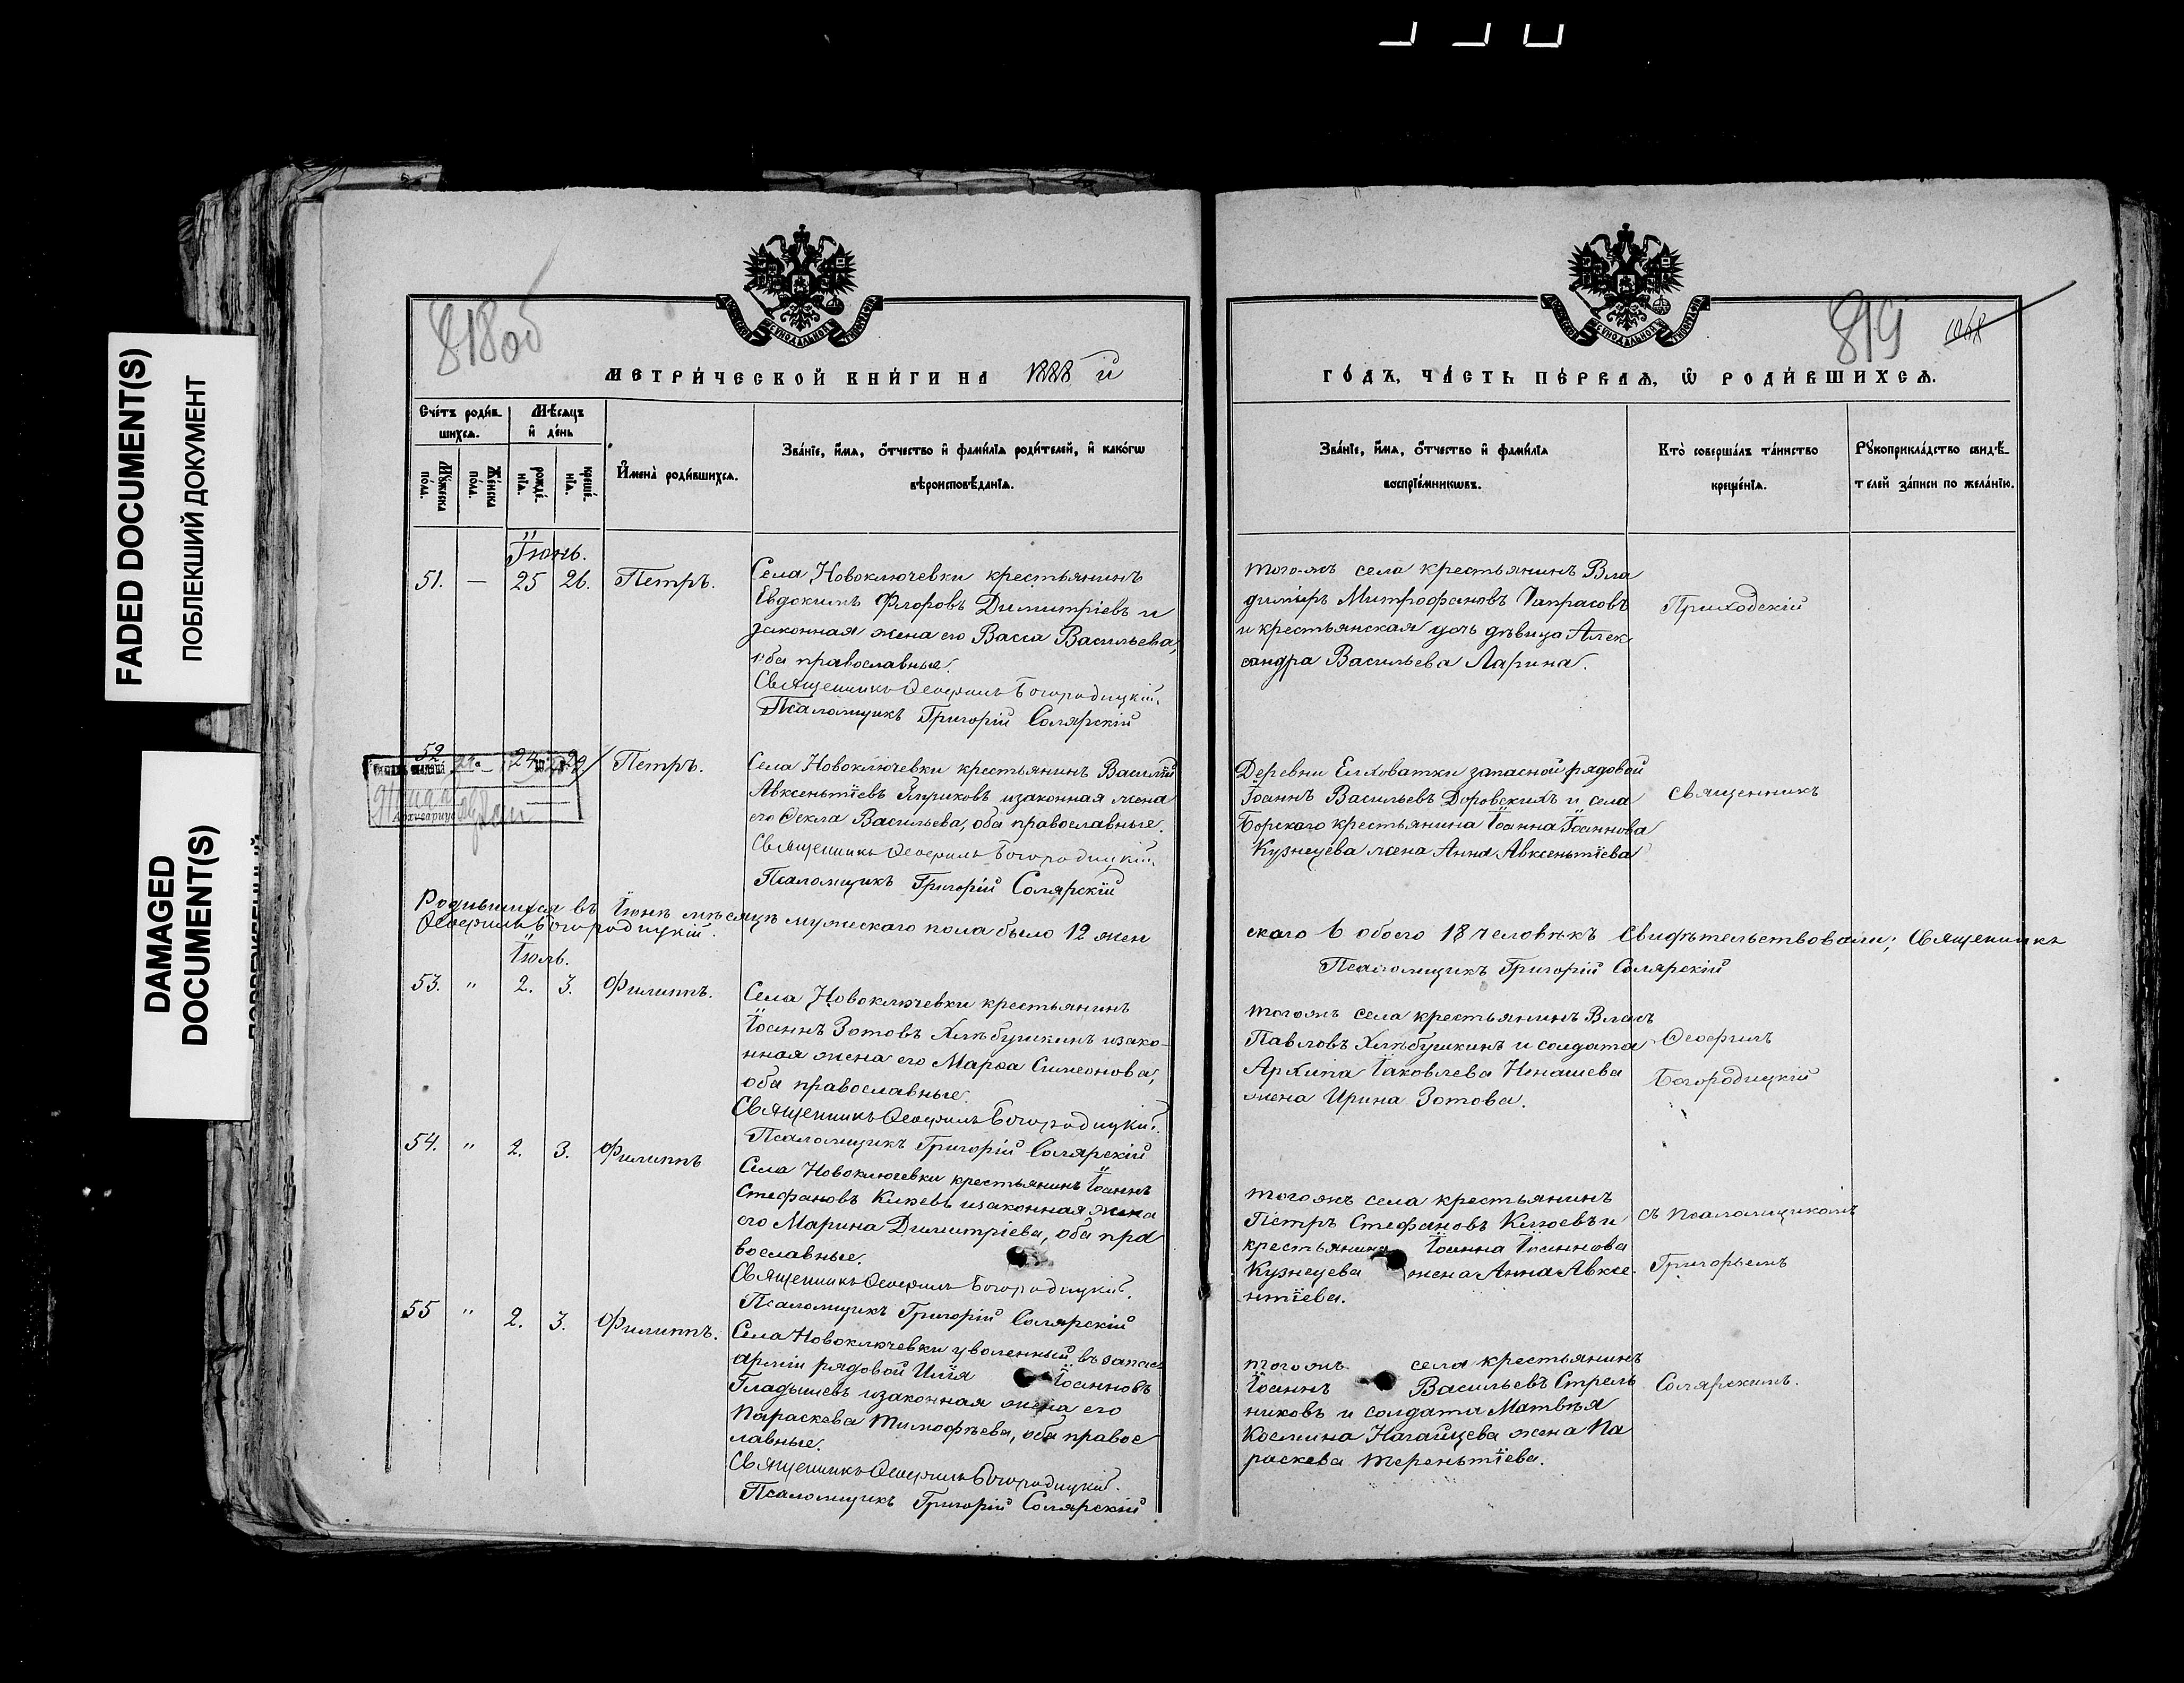 FADED DOCUMENT(S)
ПОБЛЕКШИЙ ДОКУМЕНТ
DAMAGED
DOCUMENT(S)
818об
МЕТРИ́ЧЕСКОЙ КНИ́ГИ НА 1888 й
Сче́тъ роди́в
шихсѧ.
Мѣсѧцъ
и҆ де́нь
Мꙋ́жеска
по́ла.
Же́нска
по́ла.
рожде́-
нїѧ.
креще́-
нїѧ.
И҆мена̀ роди́вшихсѧ.
Зва́нїе, и҆́мѧ, ѻ҆́тчество и҆ фами́лїѧ роди́телей, и҆ како́гѡ
вѣроисповѣ́данїѧ.
Іюнь.
51. — 25 26. Петръ.
Села Новоключевки крестьянинъ
Евдокимъ Флоровъ Димитріевъ и
законная жена его Васса Васильева,
оба православные.
Священникъ Ѳеофилъ Богородицкій.
Псаломщикъ Григорій Солярскій
52 — 24 29 Петръ.
Архиваріус
Села Новоключевки крестьянинъ Василій
Авксентьевъ изаконная жена
его Ѳекла Васильева, оба православные.
Священникъ Ѳеофилъ Богородицкій.
Псаломщикъ Григорій Солярскій
Родившихся въ Іюнѣ мѣсяцѣ мужескаго пола было 12 жен
Ѳеофилъ Богородицкій.
Іюль.
53. " 2. 3. Филиппъ.
Села Новоключевки крестьянинъ
Іоаннъ Зотовъ Хлѣбушкинъ изако-
нная жена его Марѳа Симеонова,
оба православные.
Священникъ Ѳеофилъ Богородицкій.
Псаломщикъ Григорій Солярскій
54. " 2. 3. Филиппъ
Села Новоключевки крестьянинъ Іоаннъ
Стефановъ изаконная жена
его Марина Димитріева, оба пра
вославные.
Священникъ Ѳеофилъ Богородицкій.
Псаломщикъ Григорій Солярскій
55 " 2. 3. Филиппъ.
Села Новоключевки уволенный въ запасъ
арміи рядовой Илія Іоанновъ
Гладышевъ изаконная жена его
Параскева Тимофѣева, оба правос
лавные.
Священникъ Ѳеофилъ Богородицкій.
Псаломщикъ Григорій Солярскій
819
ГО́ДЪ, ЧА́СТЬ ПЕ́РВАѦ, Ѡ҆ РОДИ́ВШИХСѦ.
Зва́нїе, и҆́мѧ, ѻ҆́тчество и҆ фами́лїѧ
воспрїе́мникѡвъ.
Кто̀ соверша́лъ та́инство
креще́нїѧ.
Рꙋкоприкла́дство свидѣ́-
телей за́писи по жела́нїю.
тогожъ села крестьянинъ Вла
димiръ Митрофановъ
и крестьянская дочь дѣвица Алек
сандра Васильева Ларина.
Приходскій
Деревни Елховатки запасной рядовой
Іоаннъ Васильевъ Доровскихъ и села
Борскаго крестьянина Іоанна Іоаннова
Кузнецова жена Анна Авксентьева
священникъ
скаго 6 обоего 18 человѣкъ Свидѣтельствовали; Священникъ
Псаломщикъ Григорій Солярскій
тогожъ села крестьянинъ Власъ
Павловъ Хлѣбушкинъ и солдата
Архипа Іаковлева Ненашева
жена Ирина Зотова.
Ѳеофилъ
Богородицкій
тогожъ села крестьянинъ
Петръ Стефановъ и
крестьянина Іоанна Іоаннова
Кузнецова жена Анна Авксе-
нтіева.
съ псаломщикомъ
Григорьемъ
тогожъ села крестьянинъ
Іоаннъ Васильевъ Стрель
никовъ и солдата Матвѣя
Космина Нагайцева жена Па
раскева Терентіева.
Солярскимъ.